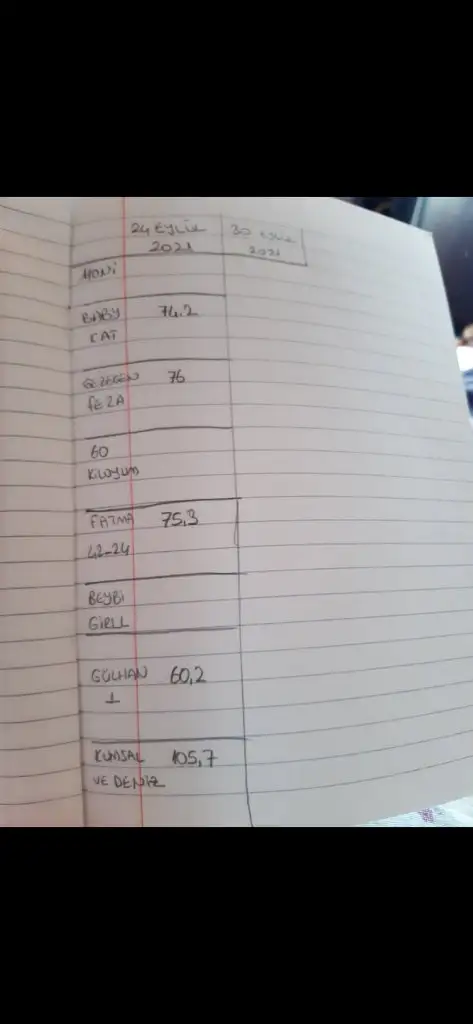 24 EYLÜL 30 EYLÜL
2021 2021
MONİ
BABY 74.2
CAT
GEZEGEN 76
FEZA
60
KİLOYUM
FATMA 75,3
42-24
BEYBİ
GİRLL
GÜLHAN 60,2
1
KUMSAL 105,7
VE DENİZ